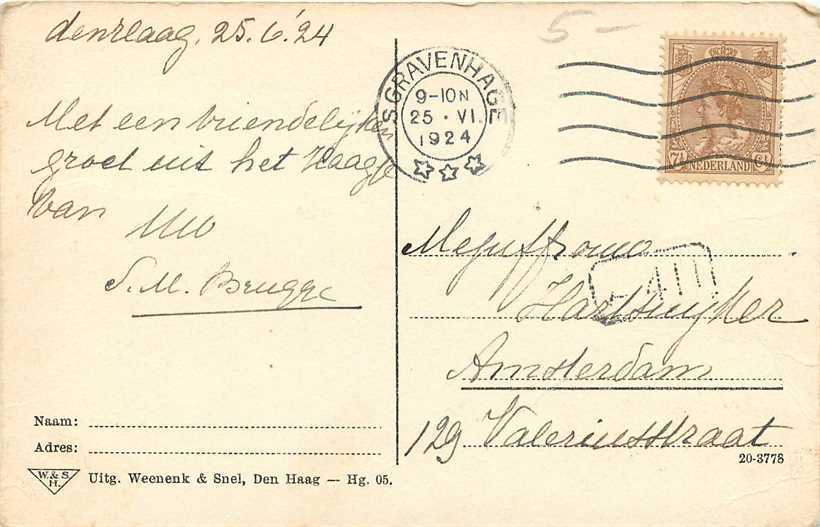 den Haag, 25.6.'24
Met een vriendelijken
groet uit het Haagje
van
S. M. Brugge
Naam:
Adres:
W. & S.
H.
Uitg. Weenenk & Snel, Den Haag — Hg. 05.
'S GRAVENHAGE
9-10 N
25 · VI.
1924
5-
7½ NEDERLAND Ct
Mejuffrouw
Hartsuyker
Amsterdam
129 Valeriusstraat
20-3778